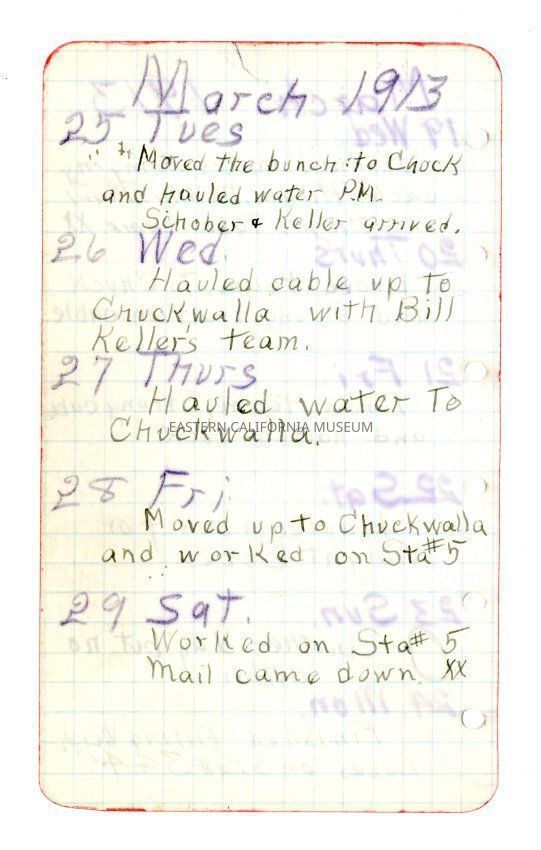 March 1913
25 Tues
Moved the bunch to Chuck
and hauled water P.M.
Schober & Keller arrived.
26 Wed.
Hauled cable up to
Chuckwalla with Bill
Keller's team.
27 Thurs
Hauled water To
Chuckwalla.
EASTERN CALIFORNIA MUSEUM
28 Fri
Moved up to Chuckwalla
and worked on Sta #5
29 Sat.
Worked on Sta # 5
Mail came down. XX